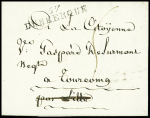 DUNKERQUE
A La Citoyenne
Ve. Gaspard Desurmont
Negte
a Tourcoing
par Lille